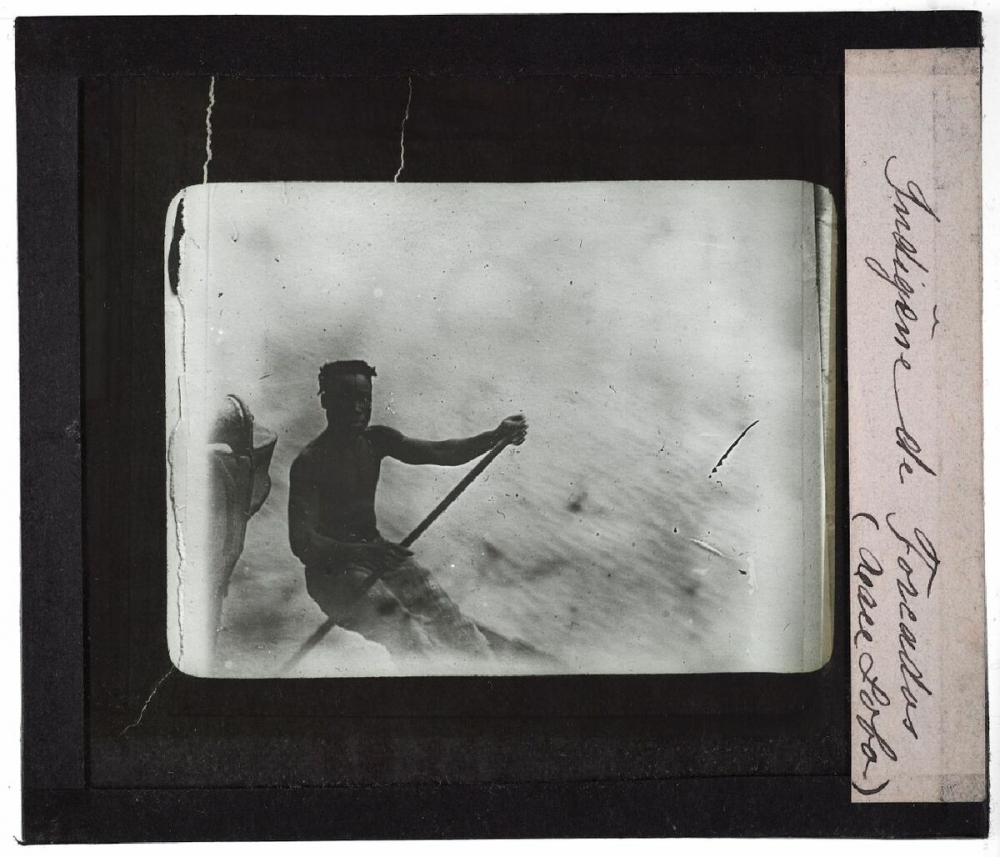 Indigène de Forcados
(race Sobo)